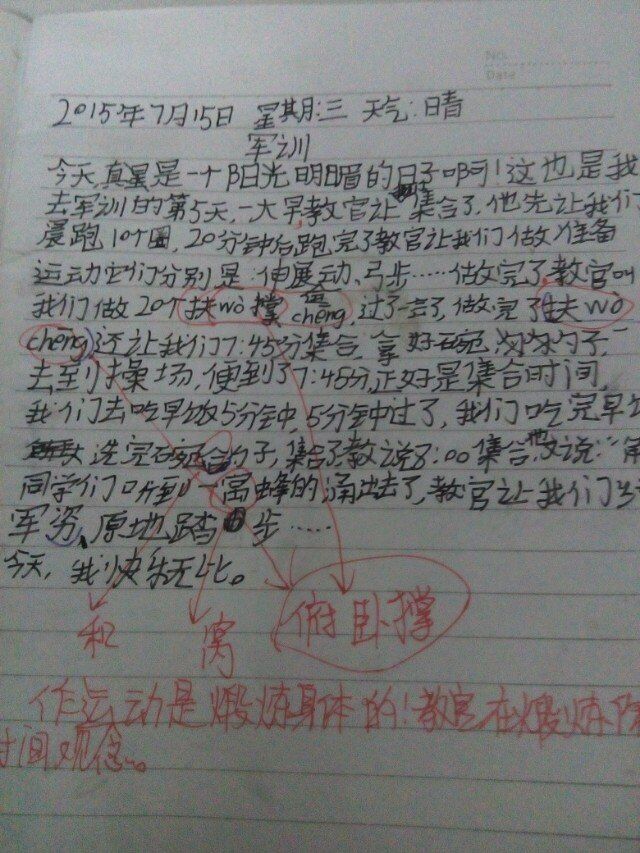 No.
Date
2015年7月15日 星期:三 天气:晴
军训
今天,真是一个阳光明暗的日子啊!这也是我
去军训的第5天,一大早教官让集合了,他先让我们
晨跑10个圈,20分钟后跑完了教官让我们做准备
运动它们分别是:伸展动、弓步……做完了,教官叫
我们做20个扶wò撑chēng,过了一会了,做完了扶wò
chēng,还让我们7:45分集合,拿好碗
去到操场,便到了7:45分,正好是集合时间,
我们去吃早饭5分钟,5分钟过了,我们吃完早
洗完碗合勺子,集合了,教说8:00集合,他又说:"
同学们听到一窝蜂的涌出去了,教官让我们
军姿、原地踏步……
今天,我快乐无比。
和 窝 俯卧撑
作运动是煅炼身体的!教官在煅炼
时间观念。